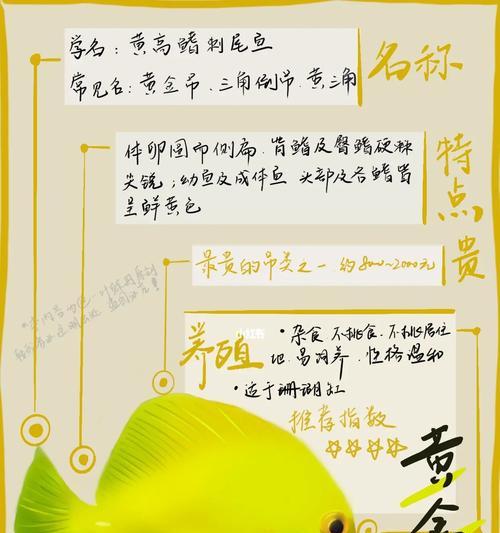 学名：黄高鳍刺尾鱼
常见名：黄金吊、三角倒吊、黄三角
名称
体卵圆而侧扁，背鳍及臀鳍硬棘
尖锐；幼鱼及成体鱼 头部及各鳍皆
呈鲜黄色
特点
最贵的吊类之一 约800~2000元
贵
养殖
小红书
·杂食 不挑食、不挑居住
地、易饲养，性格温和
·适于珊瑚缸
推荐指数
☆☆☆☆☆
黄金